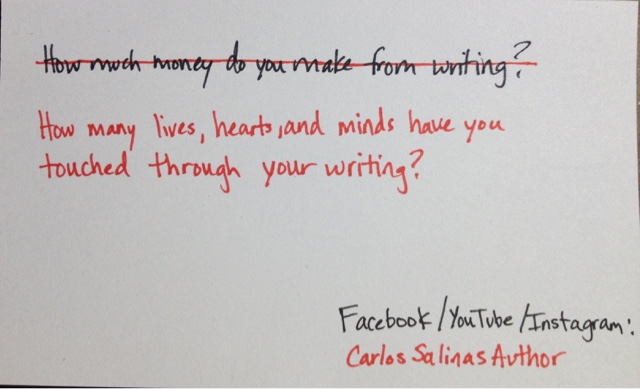 How much money do you make from writing?
How many lives, hearts, and minds have you
touched through your writing?
Facebook/YouTube/Instagram:
Carlos Salinas Author